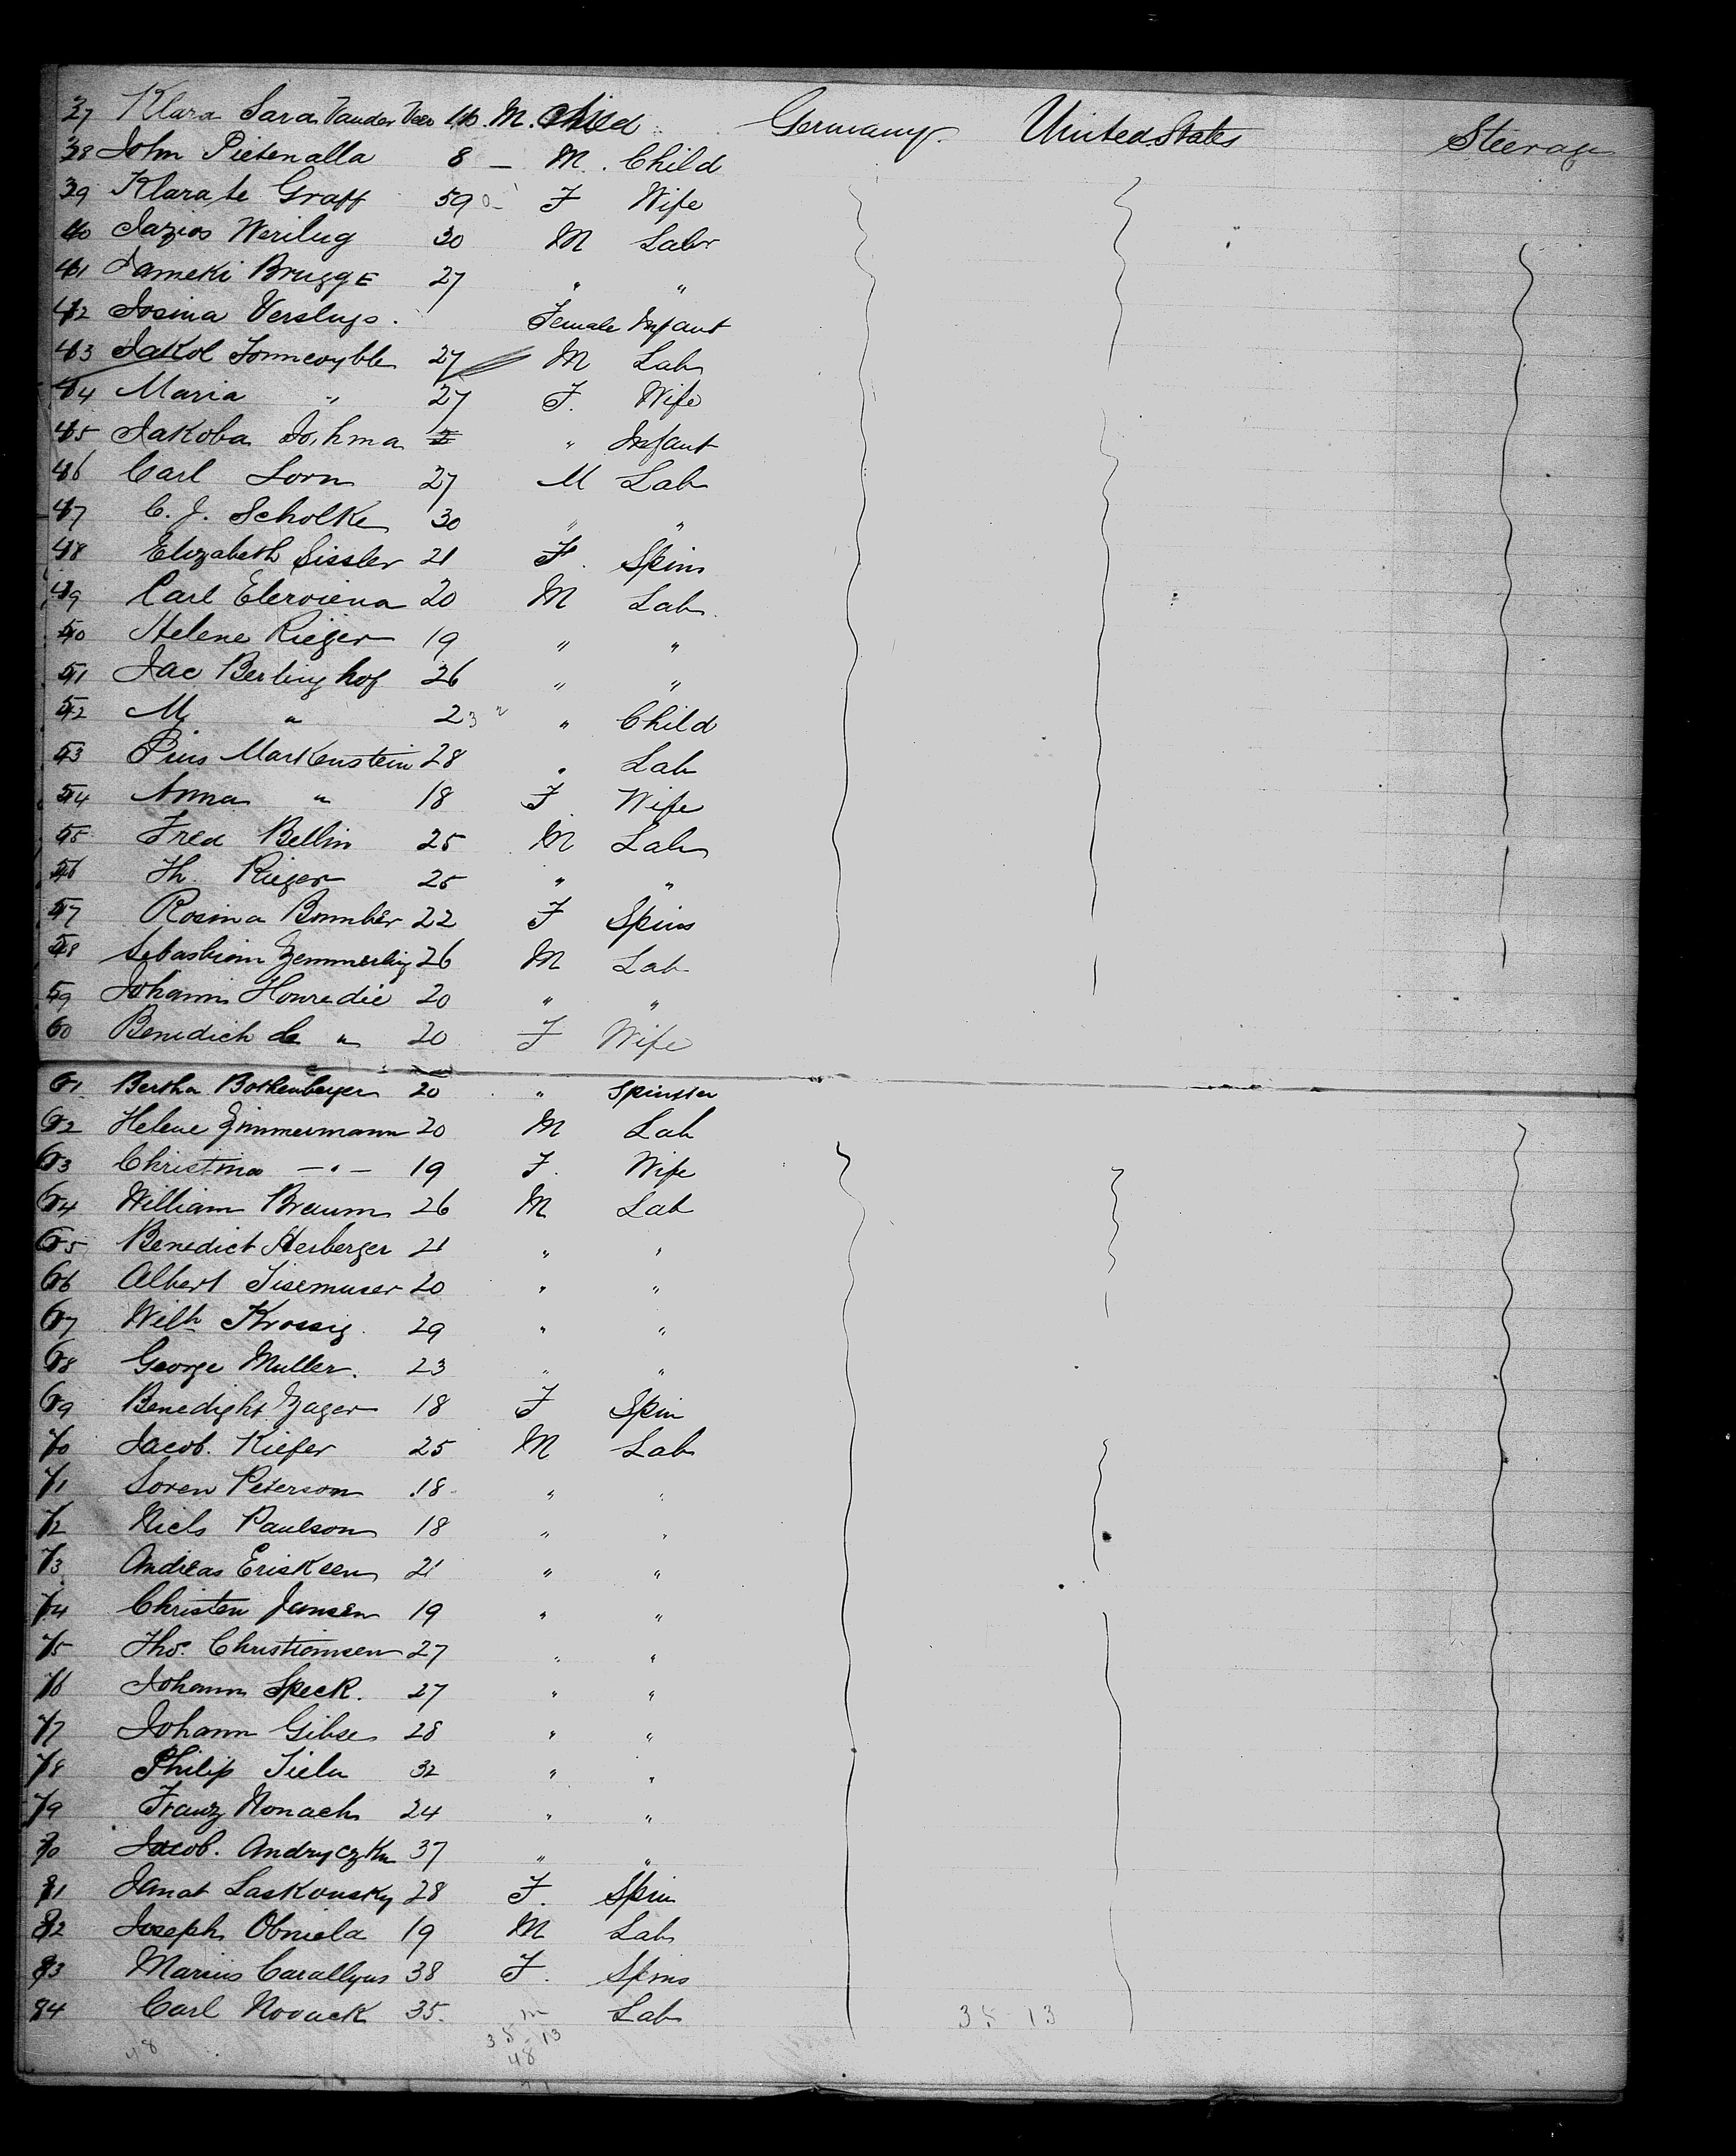 37 Klara Sara Vander Veer 10 M. Child Germany. United States Steerage
38 John Pietenalla 8 — M. Child
39 Klara te Graff 59 F Wife
40 Jazios Werilug 30 M Labr
41 Jameki Brugge 27 " "
42 Josina Verslugs. Female Infant
43 Jakol 27 M Lab
44 Maria " 27 F. Wife
45 Jakoba " Infant
46 Carl Lorn 27 M Lab
47 C. J. Scholke 30 " "
48 Elizabeth Sissler 21 F. Spins
49 Carl Eleroiena 20 M Lab
50 Helene Rieger 19 " "
51 Jac Berlinghof 26 " "
52 M " 23 " " Child
53 Pius Markenstein 28 " Lab
54 Anna " 18 F Wife
55 Fred Bellin 25 M Lab
56 Th. Rieger 25 " "
57 Rosina Bomber 22 F Spins
58 Sebastian Zemmerling 26 M Lab
59 Johann Honredie 20 " "
60 Benedich de " 20 F Wife
61. Bertha Bothenberger 20 " Spinster
62 Helene Zimmermann 20 M Lab
63 Christina — " — 19 F. Wife
64 William Braum 26 M Lab
65 Benedict Herberger 21 " "
66 Albert Tisemuser 20 " "
67 Wilh Krossig. 29 " "
68 George Muller. 23 " "
69 Benedight Zager 18 F Spin
70 Jacob. Kiefer 25 M Lab
71 Soren Peterson 18 " "
72 Niels Paulson 18 " "
73 Andreas Eriskeen 21 " "
74 Christen Jansen 19 " "
75 Tho. Christiansen 27 " "
76 Johann Speck. 27 " "
77 Johann Gibse 28 " "
78 Philip Tiela 32 " "
79 Franz Nonach 24 " "
80 Jacob. Andryczkn 37 " "
81 Janat Laskousky 28 F. Spin
82 Joseph Obniela 19 M Lab
83 Marius Carallyus 38 F. Spins
84 Carl Novack 35. m Lab 35 13
48 35 13
48